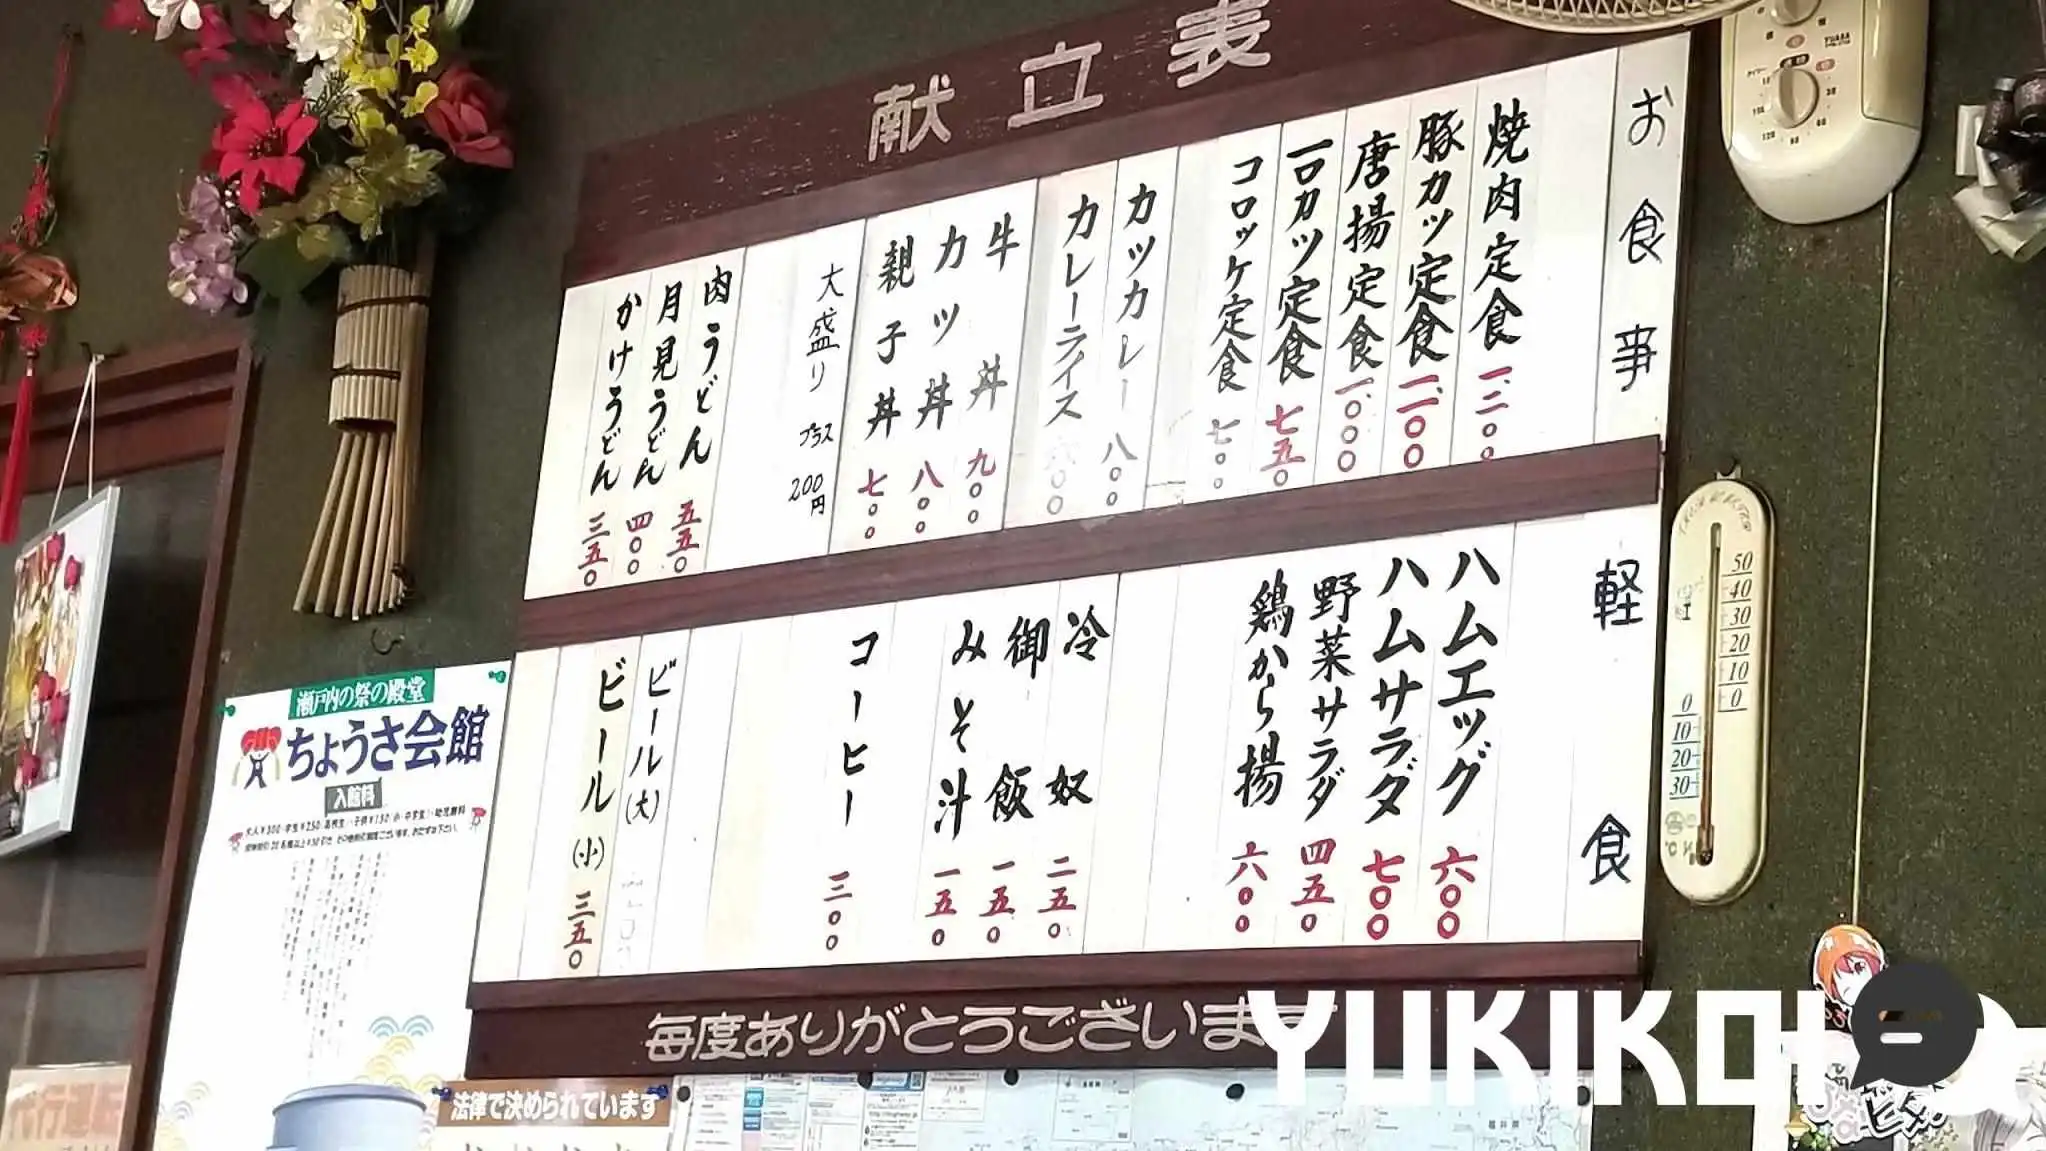 献立表
お食事
焼肉定食 一、二〇〇
豚カツ定食 一、一〇〇
唐揚定食 一、〇〇〇
一口カツ定食 七五〇
コロッケ定食 七〇〇
カツカレー 八〇〇
カレーライス
牛丼 九〇〇
カツ丼 八〇〇
親子丼 七〇〇
大盛り プラス 200円
肉うどん 五五〇
月見うどん 四〇〇
かけうどん 三五〇
軽食
ハムエッグ 六〇〇
ハムサラダ 七〇〇
野菜サラダ 四五〇
鶏から揚 六〇〇
冷奴 二五〇
御飯 一五〇
みそ汁 一五〇
コーヒー 三〇〇
ビール(大)
ビール(小) 三五〇
毎度ありがとうございます
瀬戸内の祭の殿堂
ちょうさ会館
入館料
法律で決められています
YUASA
50
40
30
20
10
0
0
10
20
30
YUKIKO